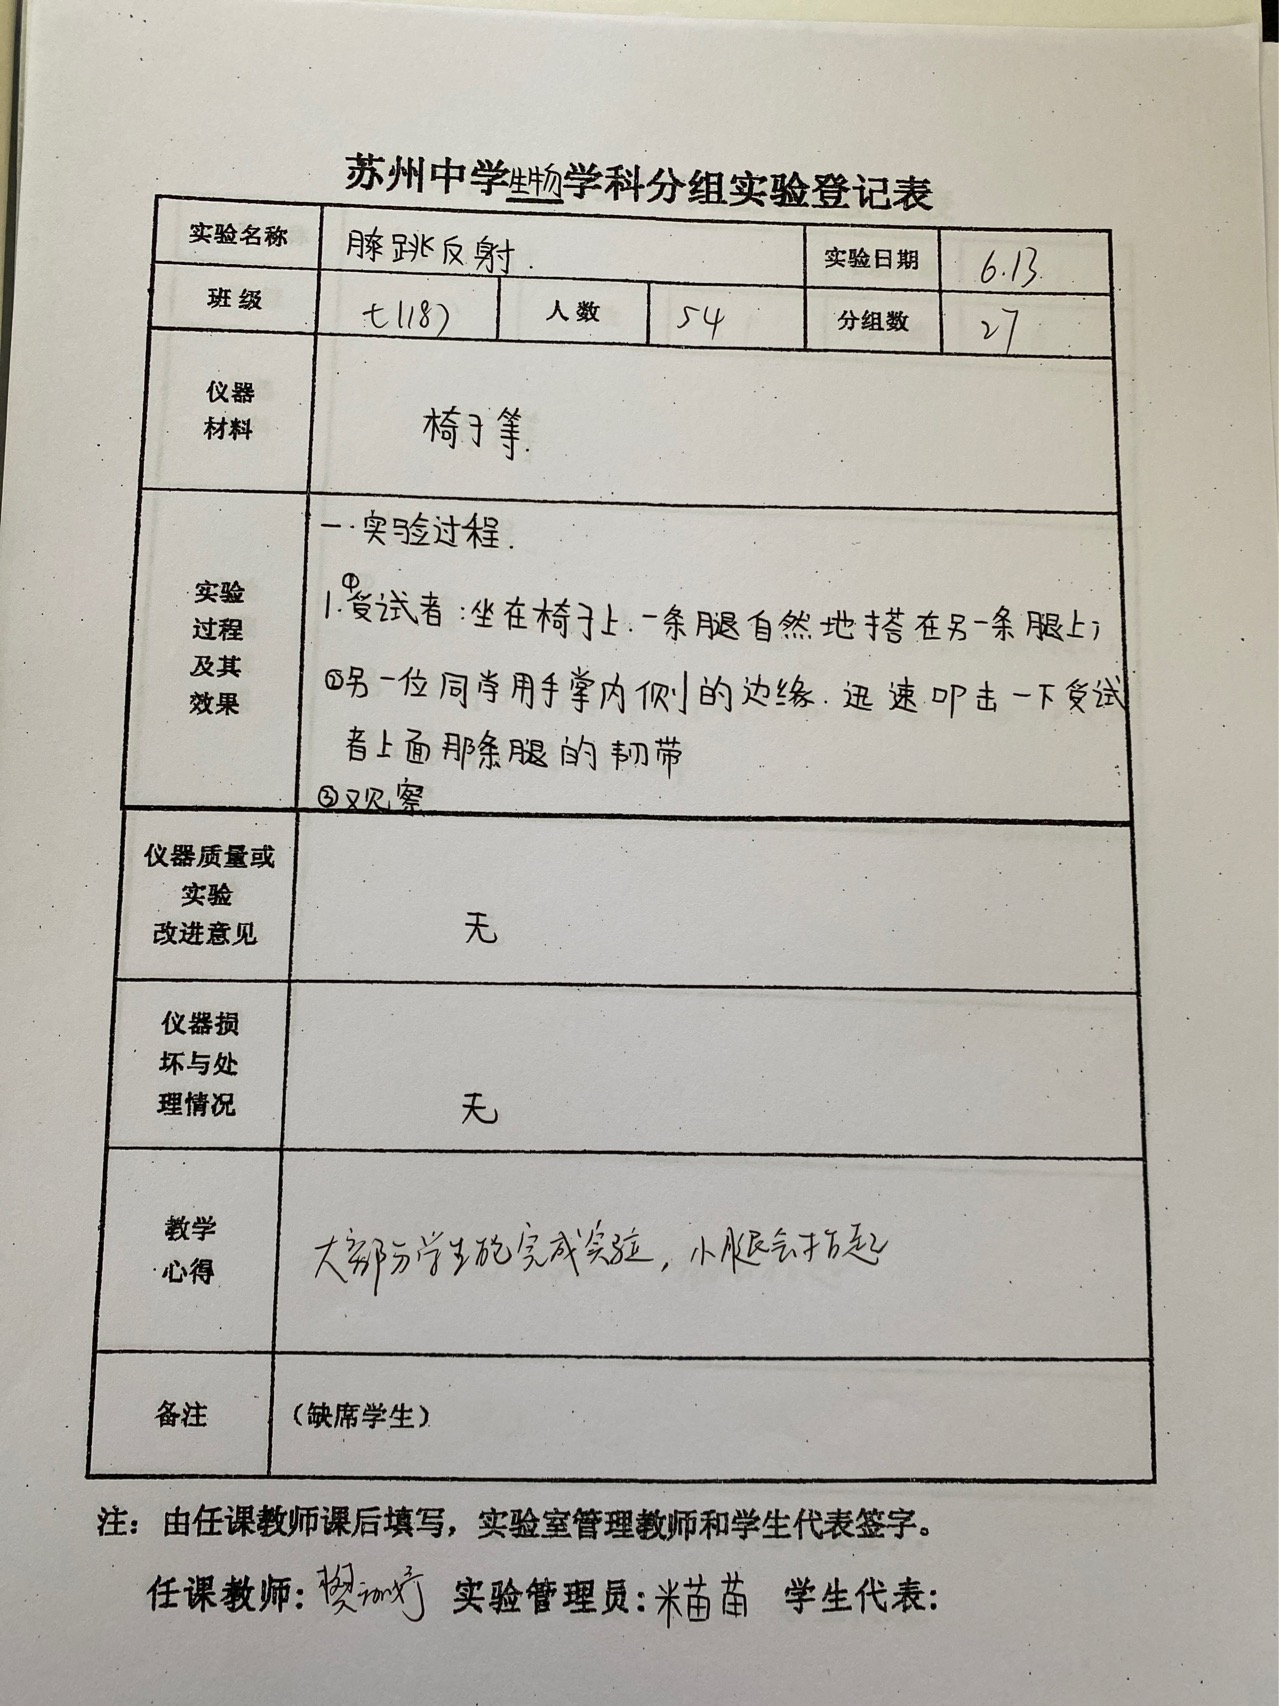 苏州中学生物学科分组实验登记表
实验名称 膝跳反射. 实验日期 6.13.
班级 七(18) 人数 54 分组数 27
仪器
材料
椅子等.
实验
过程
及其
效果
一.实验过程.
1.①受试者:坐在椅子上.一条腿自然地搭在另一条腿上;
②另一位同学用手掌内侧的边缘.迅速叩击一下受试
者上面那条腿的韧带
③观察
仪器质量或
实验
改进意见
无
仪器损
坏与处
理情况
无
教学
心得
大部分学生能完成实验,小腿会抬起
备注 (缺席学生)
注:由任课教师课后填写,实验室管理教师和学生代表签字。
任课教师: 实验管理员:米苗苗 学生代表: